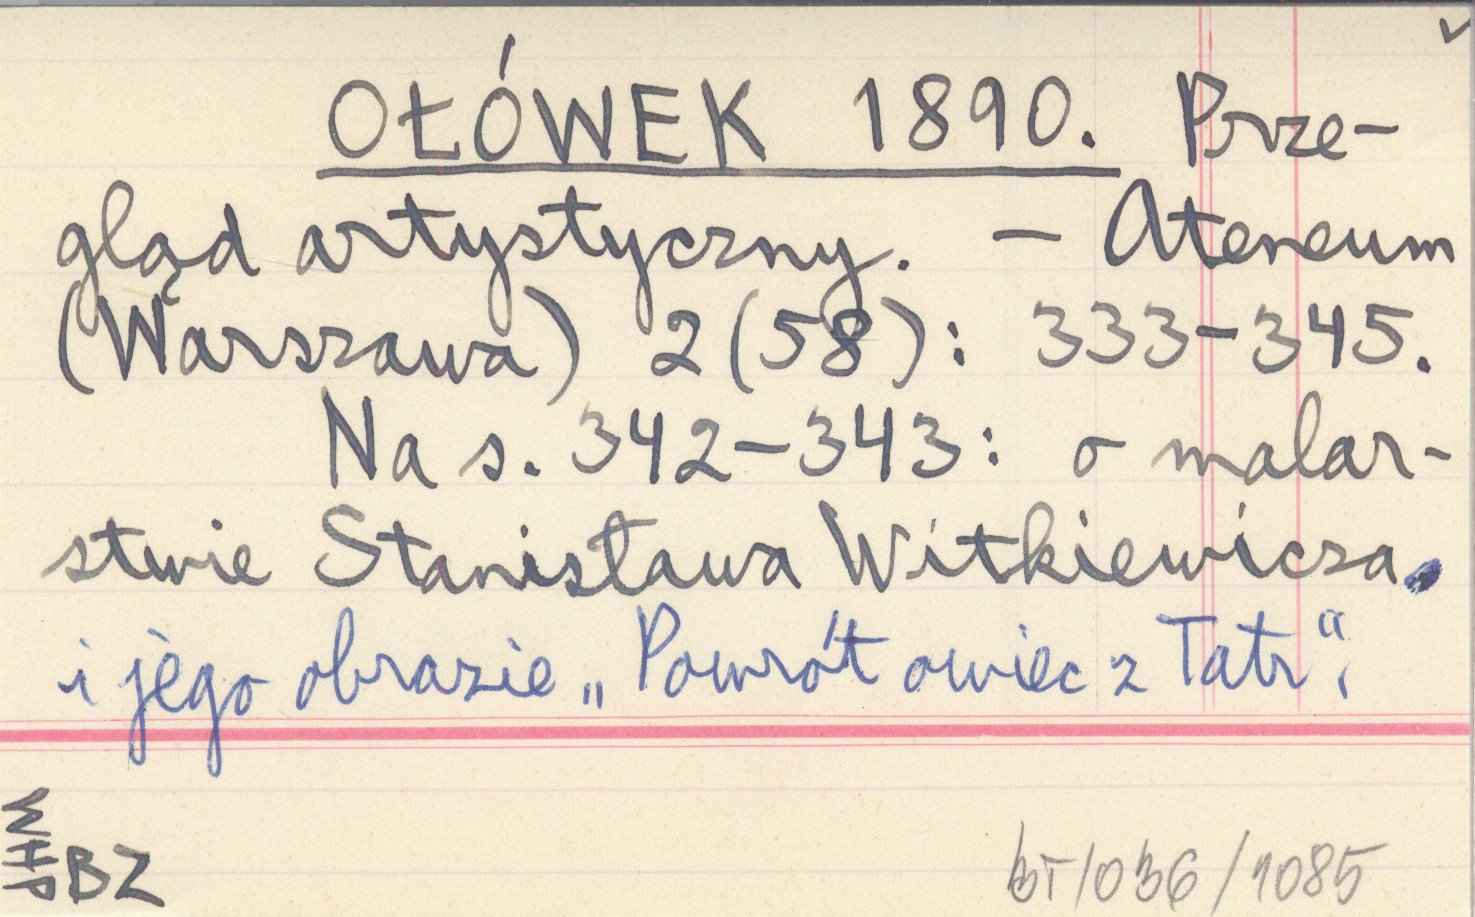 ✓
OŁÓWEK 1890. Prze-
gląd artystyczny. – Ateneum
(Warszawa) 2 (58): 333–345.
Na s. 342–343: o malar-
stwie Stanisława Witkiewicza.
i jego obrazie „Powrót owiec z Tatr“.
BZ
bT/036/1085